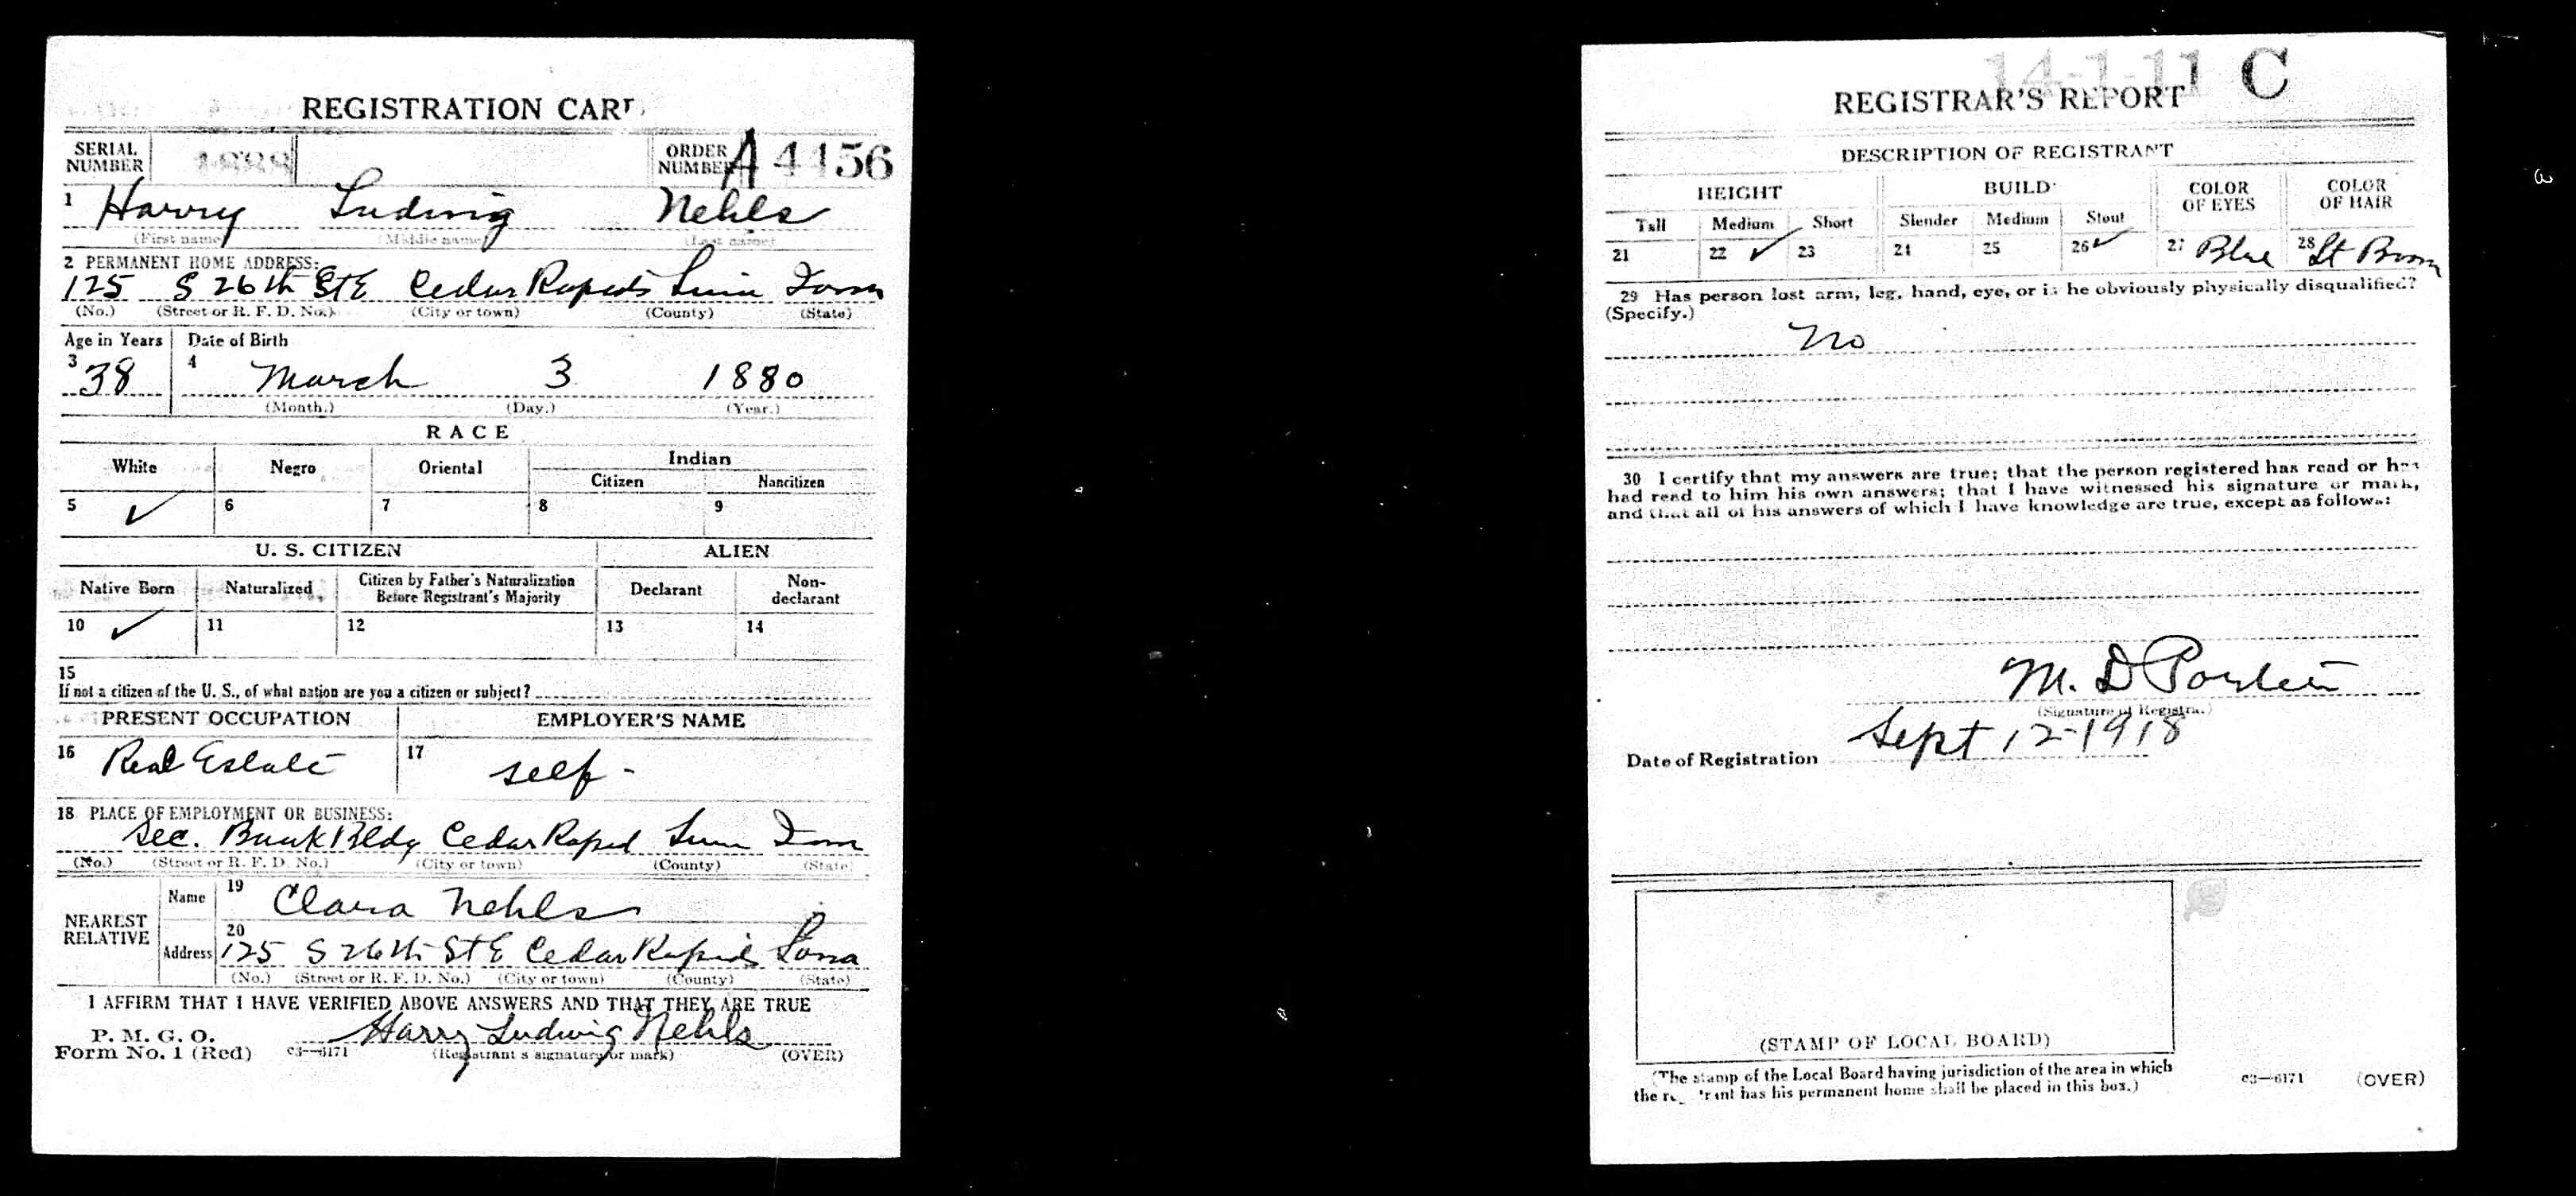 REGISTRATION CARD
SERIAL NUMBER
ORDER NUMBER A 4456
1 Harry Ludwig Nehls
(First name) (Middle name) (Last name)
2 PERMANENT HOME ADDRESS:
125 S 26th St E Cedar Rapids Linn Iowa
(No.) (Street or R. F. D. No.) (City or town) (County) (State)
Age in Years Date of Birth
3 38 4 March 3 1880
(Month.) (Day.) (Year.)
RACE
White Negro Oriental Indian
Citizen Noncitizen
5 ✓ 6 7 8 9
U. S. CITIZEN ALIEN
Native Born Naturalized Citizen by Father's Naturalization Before Registrant's Majority Declarant Non-declarant
10 ✓ 11 12 13 14
15
If not a citizen of the U. S., of what nation are you a citizen or subject?
PRESENT OCCUPATION EMPLOYER'S NAME
16 Real Estate 17 self -
18 PLACE OF EMPLOYMENT OR BUSINESS:
Sec. Bank Bldg Cedar Rapid Linn Iowa
(No.) (Street or R. F. D. No.) (City or town) (County) (State)
NEAREST RELATIVE
Name 19 Clara Nehls
Address 20 125 S 26th St E Cedar Rapids Iowa
(No.) (Street or R. F. D. No.) (City or town) (County) (State)
I AFFIRM THAT I HAVE VERIFIED ABOVE ANSWERS AND THAT THEY ARE TRUE
P. M. G. O.
Form No. 1 (Red) c3—6171 Harry Ludwig Nehls
(Registrant's signature or mark) (OVER)
14-1-11 C
REGISTRAR'S REPORT
DESCRIPTION OF REGISTRANT
HEIGHT BUILD COLOR OF EYES COLOR OF HAIR
Tall Medium Short Slender Medium Stout
21 22 ✓ 23 24 25 26 ✓ 27 Blue 28 Lt Brown
29 Has person lost arm, leg, hand, eye, or is he obviously physically disqualified?
(Specify.)
No
30 I certify that my answers are true; that the person registered has read or has
had read to him his own answers; that I have witnessed his signature or mark,
and that all of his answers of which I have knowledge are true, except as follows:
M. D.
(Signature of Registrar)
Date of Registration Sept 12-1918
(STAMP OF LOCAL BOARD)
(The stamp of the Local Board having jurisdiction of the area in which
the registrant has his permanent home shall be placed in this box.)
c3—6171 (OVER)